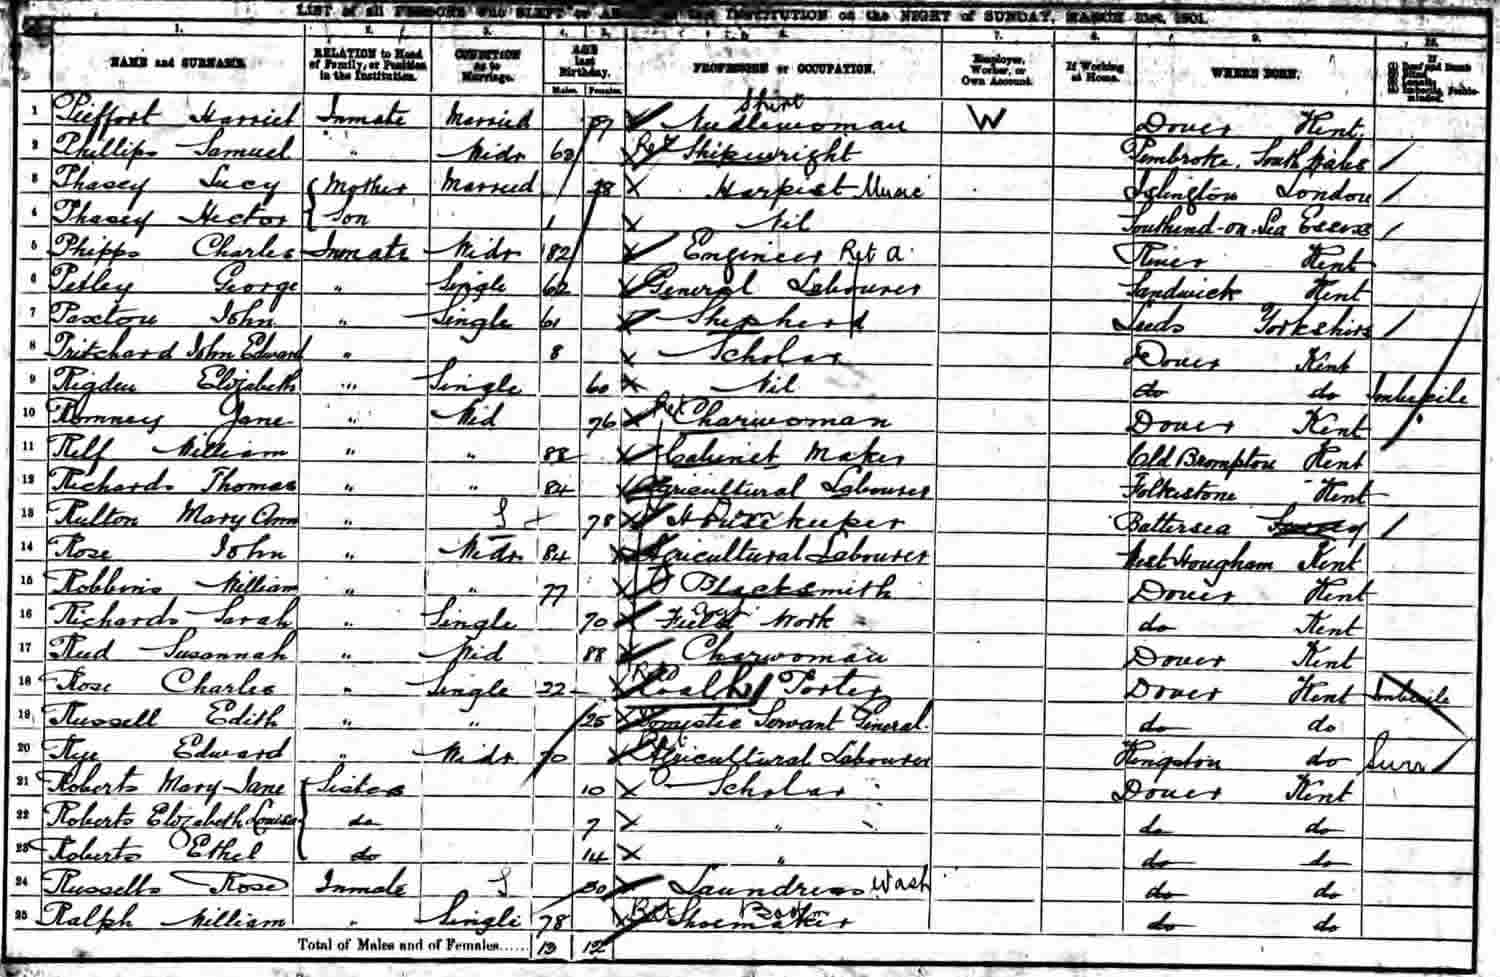 LIST of all PERSONS who SLEPT or ABODE in this INSTITUTION on the NIGHT of SUNDAY, MARCH 31st, 1901.
1. 2. 3. 4. 5. 6. 7. 8. 9. 10.
NAME and SURNAME RELATION to Head of Family, or Position in the Institution. CONDITION as to Marriage. AGE last Birthday. Males. Females. PROFESSION or OCCUPATION. Employer, Worker, or Own Account. If Working at Home. WHERE BORN. If (1) Deaf and Dumb (2) Blind (3) Lunatic (4) Imbecile, Feeble-minded.
1 Harriet Inmate Married Shirt Needlewoman W Dover Kent
2 Phillips Samuel " Widr Ret Shipwright Pembroke, South Wales
3 Phasey Lucy Mother Married 28 Harpist Music Islington London
4 Phasey Hector Son 1 Nil Southend-on-Sea Essex
5 Phipps Charles Inmate Widr 82 Engineer Ret River Kent
6 Petley George " Single 62 General Labourer Sandwich Kent
7 Paxton John " Single 61 Shepherd Leeds Yorkshire
8 Pritchard John Edward " 8 Scholar Dover Kent
9 Rigden Elizabeth " Single 60 Nil do do Imbecile
10 Romney Jane " Wid 76 Ret Charwoman Dover Kent
11 Relf William " " 88 Cabinet Maker Old Brompton Kent
12 Richards Thomas " " 84 Agricultural Labourer Folkestone Kent
13 Rulton Mary Ann " S 78 Housekeeper Dom Battersea Surrey
14 Rose John " Widr 84 Agricultural Labourer West Hougham Kent
15 Robbins William " " 77 Blacksmith Dover Kent
16 Richards Sarah " Single 70 Field Work do Kent
17 Susannah " Wid 88 Charwoman Dover Kent
18 Rose Charles " Single 22 Porter Dover Kent Imbecile
19 Russell Edith " " 25 Domestic Servant General do do
20 Rye Edward " Widr 70 Agricultural Labourer Kingston do Surr
21 Roberts Mary Jane Sisters 10 Scholar Dover Kent
22 Roberts Elizabeth Louisa do 7 " do do
23 Roberts Ethel do 14 " do do
24 Russells Rose Inmate S 30 Laundress Wash do do
25 Ralph William " Single 78 Ret Shoemaker do do
Total of Males and of Females...... 13 12